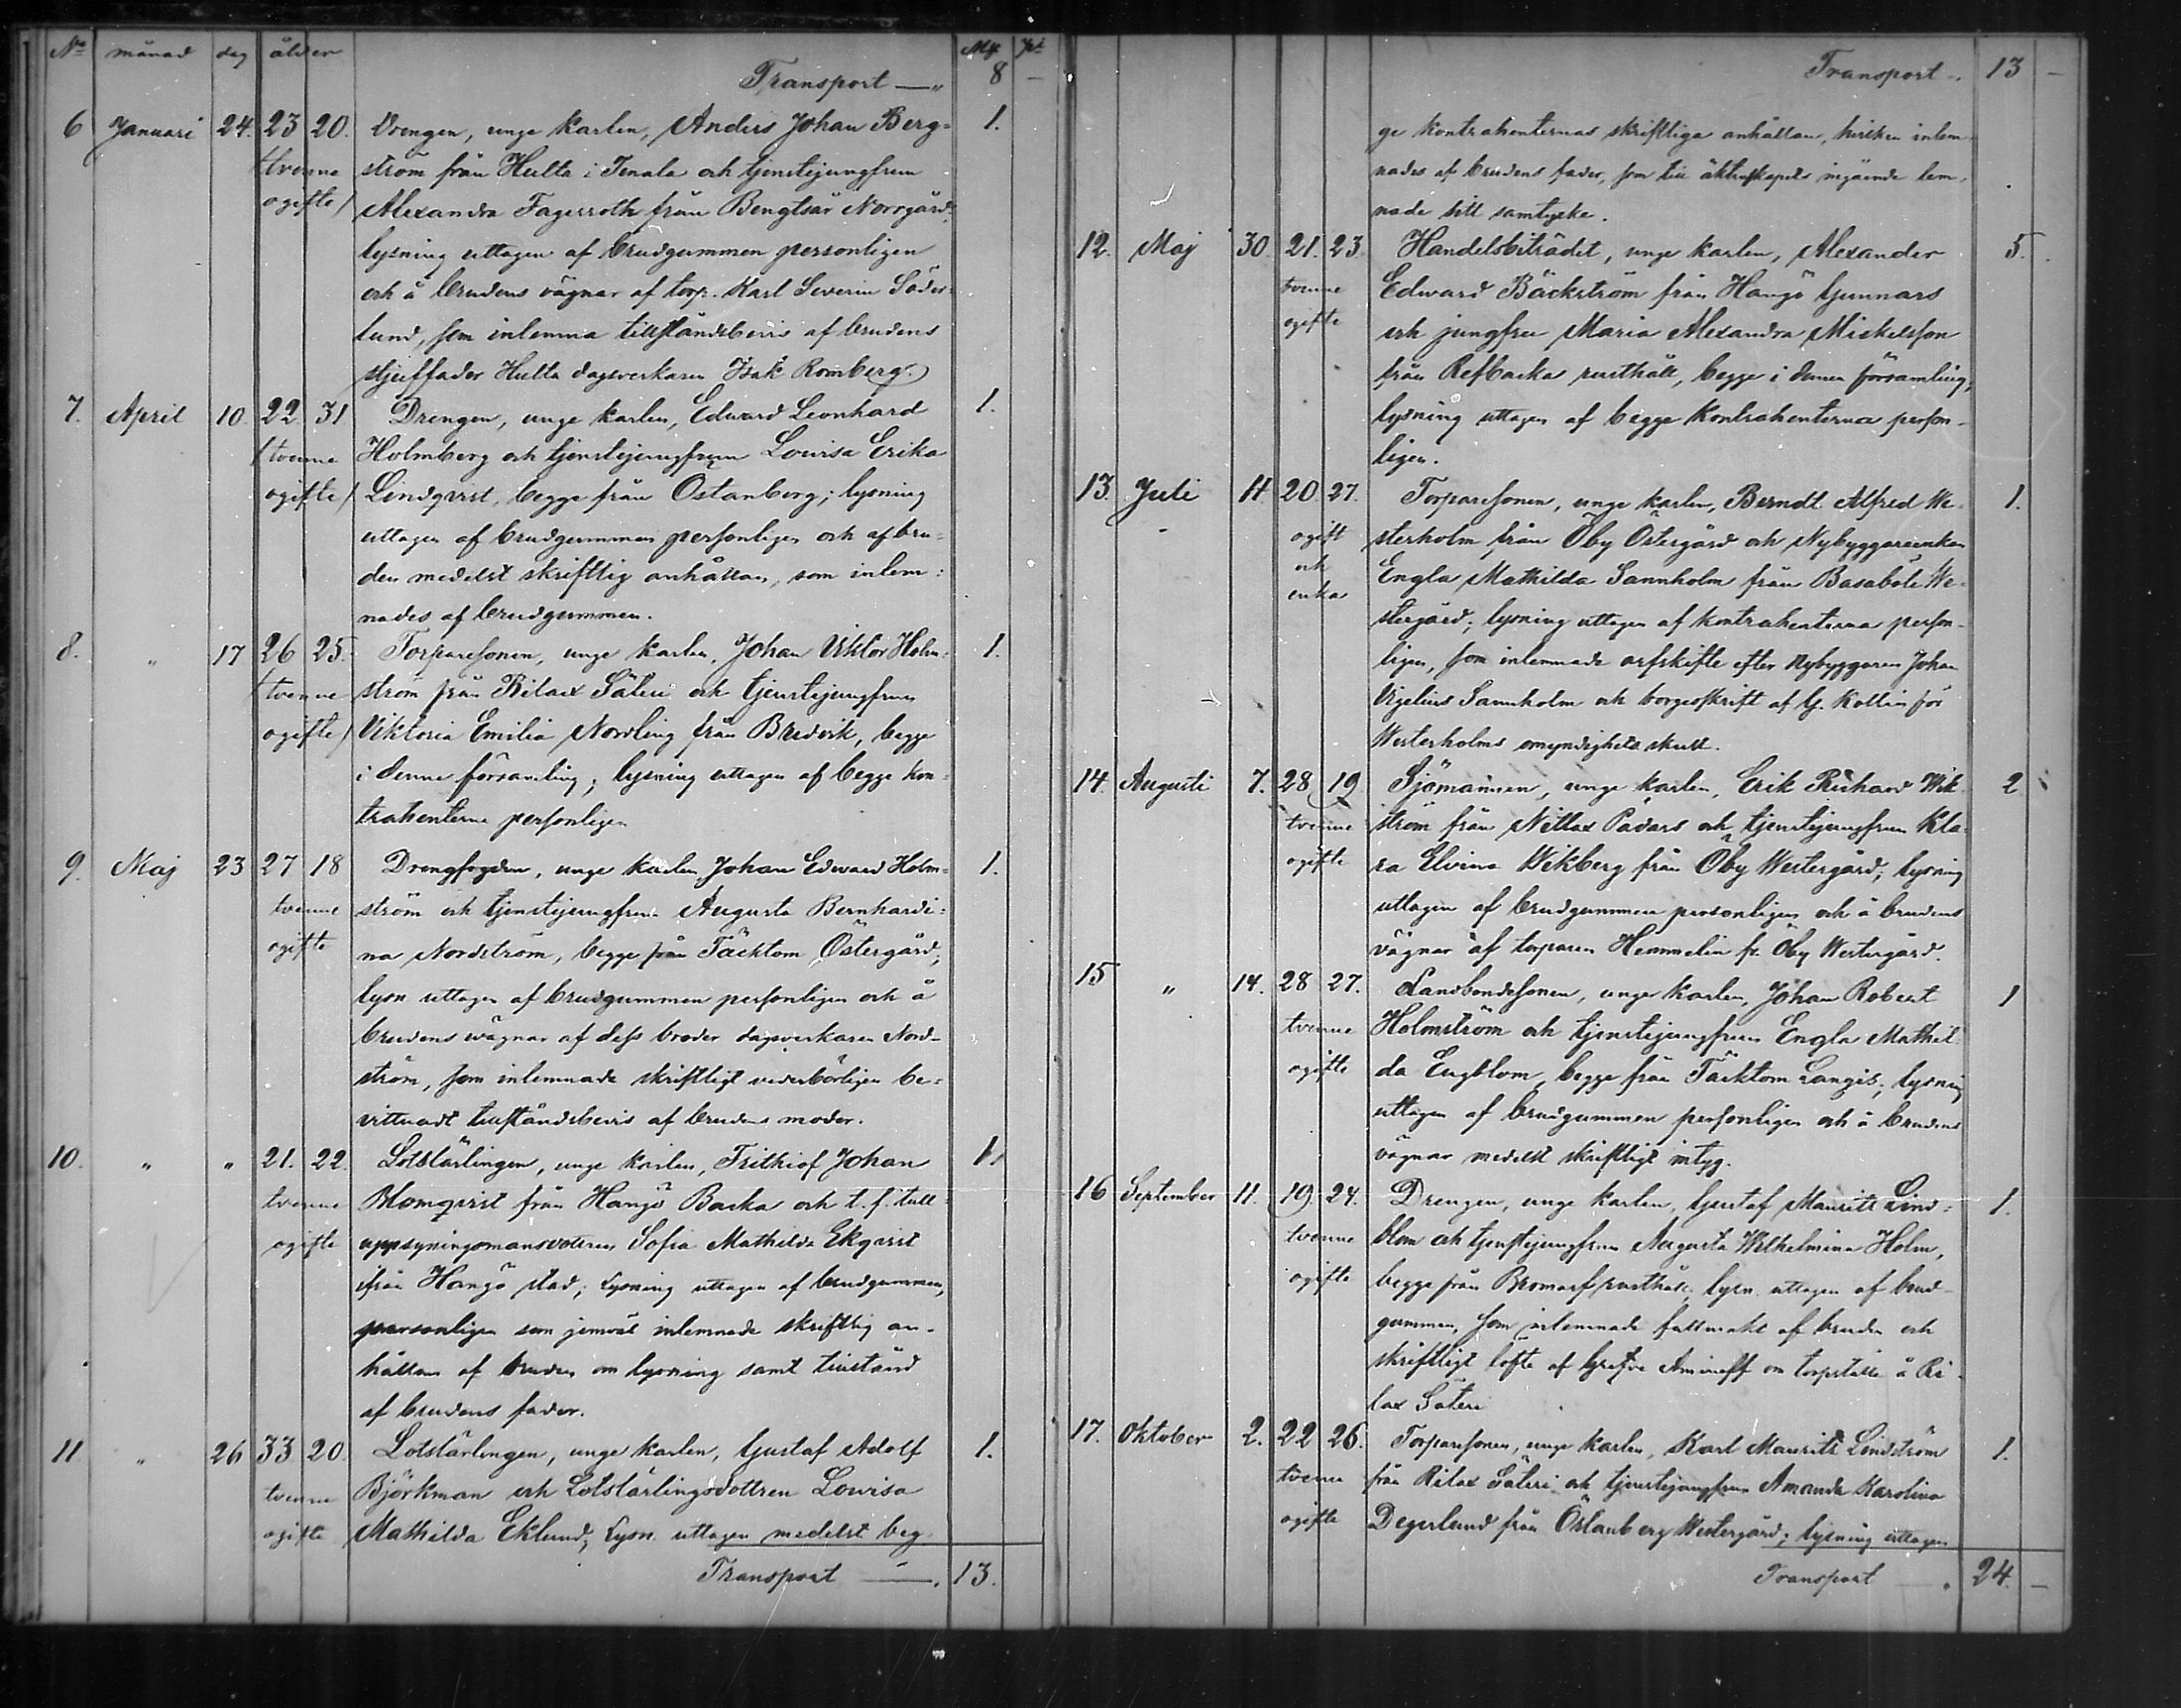 No månad dag ålder Mk pi
Transport —„ 8 —
6 Januari 24. 23 20. Drengen, unge karlen, Anders Johan Berg= 1.
(tvenne ström från Hulta i Tenala och tjenstejungfrun
ogifte) Alexandra Fagerroth från Bengtsår Norrgård;
lysning uttagen af brudgummen personligen
och å brudens vägnar af torp. Karl Severin Söder-
lund, som inlemna tillståndsbevis af brudens
stjuffader Hulta dagsverkaren Isak Romberg.
7. April 10. 22 31 Drengen, unge karlen, Edward Leonhard 1.
(tvenne Holmberg och tjenstejungfrun Lovisa Erika
ogifte) Lindqvist, begge från Östanberg; lysning
uttagen af brudgumman personligen och af bru-
den medelst skriftlig anhållan, som inlem=
nades af brudgummen.
8. „ 17 26 25. Torparesonen, unge karlen, Johan Viktor Holm= 1.
(tvenne ström från Rilax Säteri och tjenstejungfrun
ogifte) Viktoria Emilia Nordling från Bredvik, begge
i denna församling; lysning uttagen af begge kon=
trahenterna personligen
9. Maj 23 27 18 Drengfogden, unge karlen Johan Edward Holm= 1.
tvenne ström och tjenstejungfrun Augusta Bernhardi=
ogifte na Nordström, begge från Täcktom Östergård;
lysn uttagen af brudgummen personligen och å
brudens wägnar af dess broder dagsverkaren Nord-
ström, som inlemnade skriftligt vederbörligen be=
vittnadt tillståndsbevis af brudens moder.
10. „ „ 21. 22. Lotslärlingen, unge karlen, Frithiof Johan 1.
tvenne Blomqvist från Hangö Backa och t. f. tull=
ogifte uppsyningsmansdottren Sofia Mathilda Ekqvist
från Hangö stad; Lysning uttagen af brudgummen,
personligen som jemväl inlemnade skriftlig an-
hållan af bruden om lysning samt tillstånd
af brudens fader.
11 „ 26 33 20. Lotslärlingen, unge karlen, Gustaf Adolf 1.
tvenne Björkman och Lotslärlingsdottren Lovisa
ogifte Mathilda Eklund; Lysn. uttagen medelst beg
Transport —. 13.
Transport -. 13 —
ge kontrahenternas skriftliga anhållan, hvilken inlem
nades af brudens fader, som till äktenskapets ingående lem-
nade sitt samtycke.
12. Maj 30. 21. 23. Handelsbiträdet, unge karlen, Alexander 5.
tvenne Edward Bäckström från Hangö Gunnars
ogifte och jungfru Maria Alexandra Mickelsson
från Refbacka rusthåll, begge i denna församling,
lysning uttagen af begge kontrahenterna person-
ligen.
13. Juli 11 20. 27. Torparesonen, unge karlen, Berndt Alfred We- 1.
ogift sterholm från Öby Östergård och Nybyggareenkan
och Engla Mathilda Sannholm från Basaböle We-
enka stergård; lysning uttagen af kontrahenterna person-
ligen, som inlemnade arfskifte efter Nybyggaren Johan
Vigelius Sannholm och borgesskrift af G. Kollin för
Westerholms omyndighets skull.
14. Augusti 7. 28 19. Sjömannen, unge karlen, Erik Richard Wik 2
tvenne ström från Nitlax Padars och tjenstejungfrun Kla-
ogifte ra Elvina Wikberg från Öby Westergård; lysning
uttagen af brudgummen personligen och å brudens
vägnar af torparen Hemmelin fr. Öby Westergård.
15 „ 14. 28 27. Landbondesonen, unge karlen, Johan Robert 1
tvenne Holmström och tjenstejungfrun Engla Mathil
ogifte da Engblom, begge från Täcktom Langis; lysning
uttagen af brudgummen personligen och å brudens
vägnar medelst skriftligt intyg.
16 September 11. 19. 24. Drengen, unge karlen, Gustaf Maurits Lind= 1.
tvenne blom och tjenstejungfrun Augusta Wilhelmina Holm,
ogifte begge från Bromarf rusthåll, lysn. uttagen af brud-
gummen, som inlemnade fullmakt af bruden och
skriftligt löfte af Grefve Amineff om torpställe å Ri-
lax Säteri
17. Oktober 2. 22 26. Torparesonen, unge karlen, Karl Maurits Lindström 1.
tvenne från Rilax Säteri och tjenstejungfrun Amanda Karolina
ogifte Degerlund från Östanberg Westergård; lysning uttagen
Transport —. 24. —